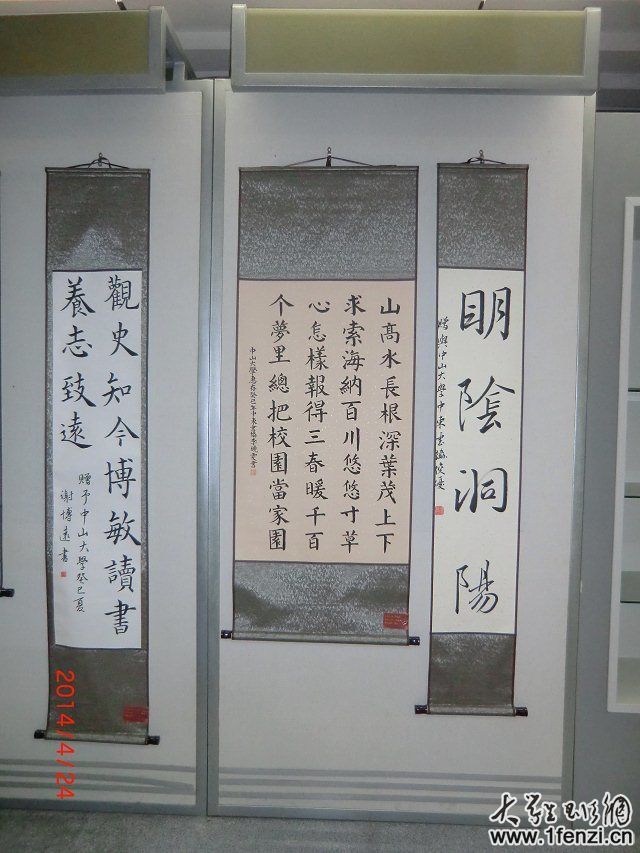 明陰洞陽
贈與中山大學
山高水長根深葉茂上下
求索海納百川悠悠寸草
心怎樣報得三春暖千百
个夢里總把校園當家園
中山大學惠存癸巳年
觀史知今博敏讀書
養志致遠
贈予中山大學癸巳夏
謝博遠書
2014/4/24
www.1fenzi.cn